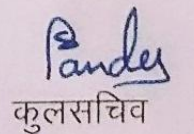 Pandey
कुलसचिव